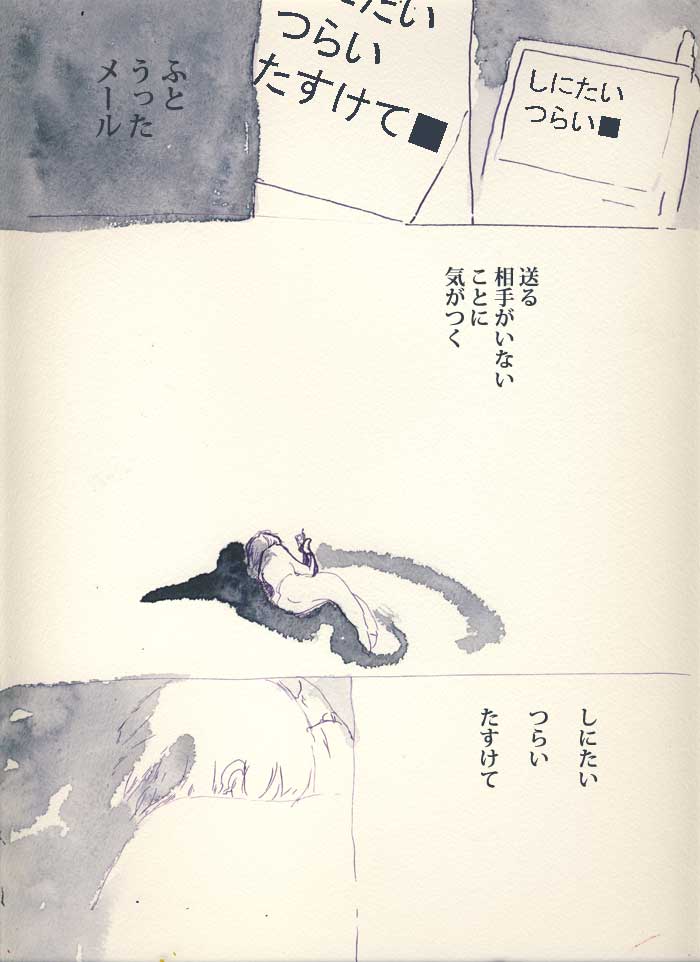 しにたい
つらい■
にたい
つらい
たすけて■
ふと
うった
メール
送る
相手がいない
ことに
気がつく
しにたい
つらい
たすけて